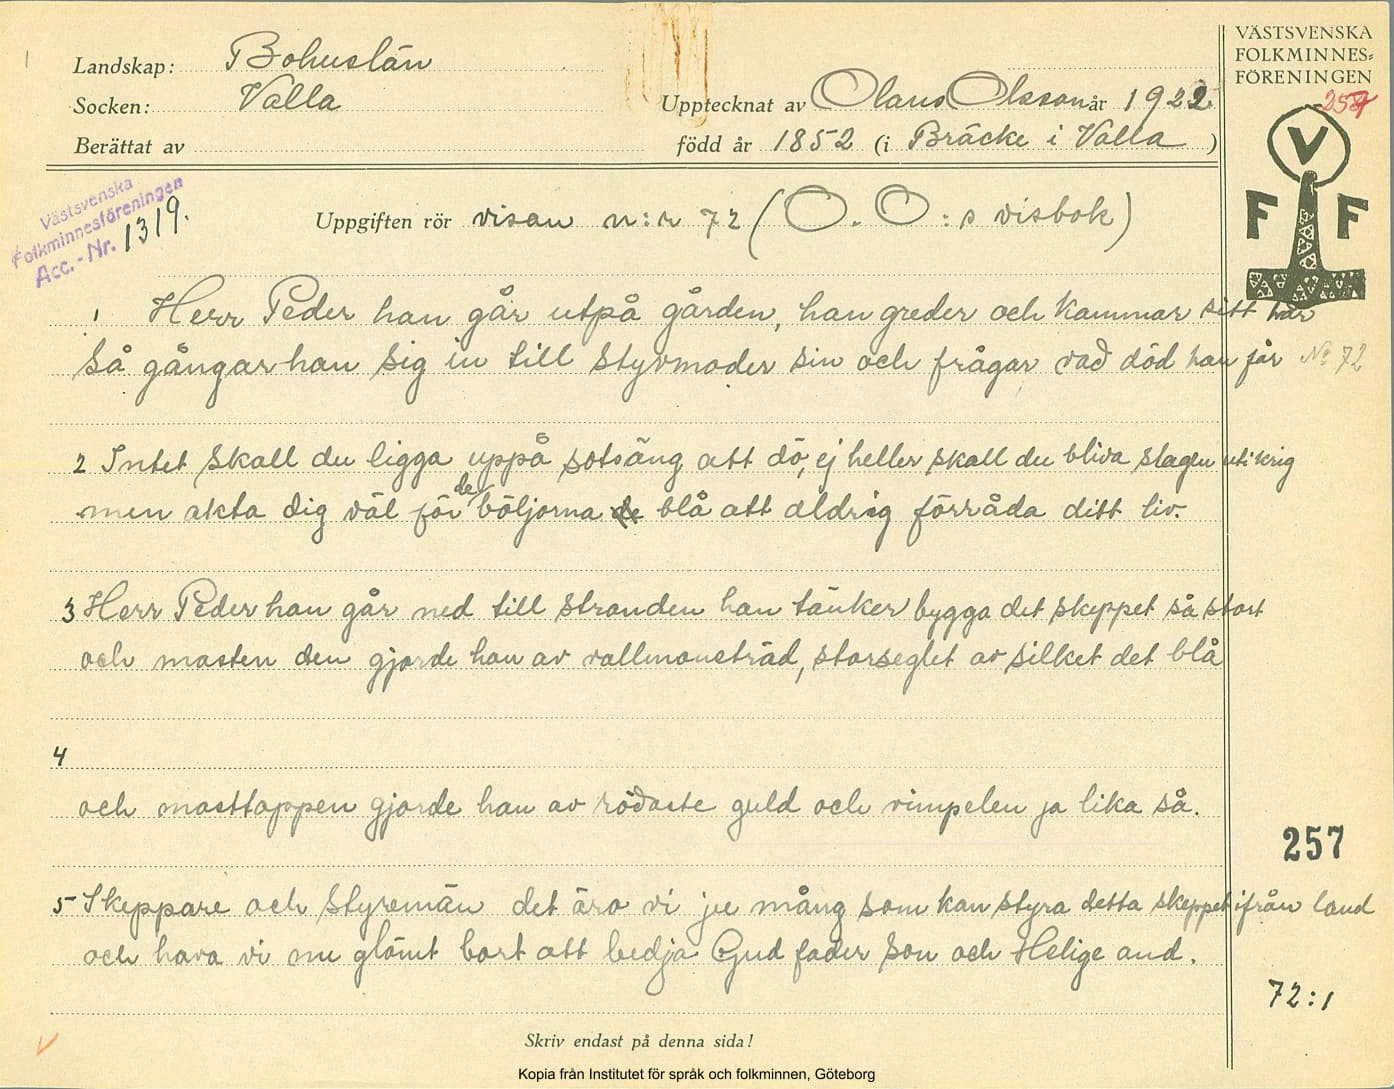 Landskap: Bohuslän
Socken: Valla
Berättat av
Upptecknat av Olaus Olsson år 1922
född år 1852 (i Bräcke i Valla)
VÄSTSVENSKA
FOLKMINNES-
FÖRENINGEN
257
V
F F
Västsvenska
Folkminnesföreningen
Acc.-Nr. 1319.
Uppgiften rör visan n:r 72 (O. O:s visbok)
1 Herr Peder han går utpå gården, han greder och kammar sitt hår
så gångar han sig in till styvmoder sin och frågar vad död han får
No 72
2 Intet skall du ligga uppå sotsäng att dö, ej heller skall du bliva slagen uti krig
men akta dig väl för de böljorna de blå att aldrig förråda ditt liv.
3 Herr Peder han går ned till stranden han tänker bygga det skeppet så stort
och masten den gjorde han av vallmonsträd, storseglet av silket det blå
4
och masttoppen gjorde han av rödaste guld och vimpelen ja lika så.
257
5 Skeppare och styremän det äro vi ju mång som kan styra detta skeppet ifrån land
och hava vi nu glömt bort att bedja Gud fader son och Helige and.
72:1
Skriv endast på denna sida!
Kopia från Institutet för språk och folkminnen, Göteborg